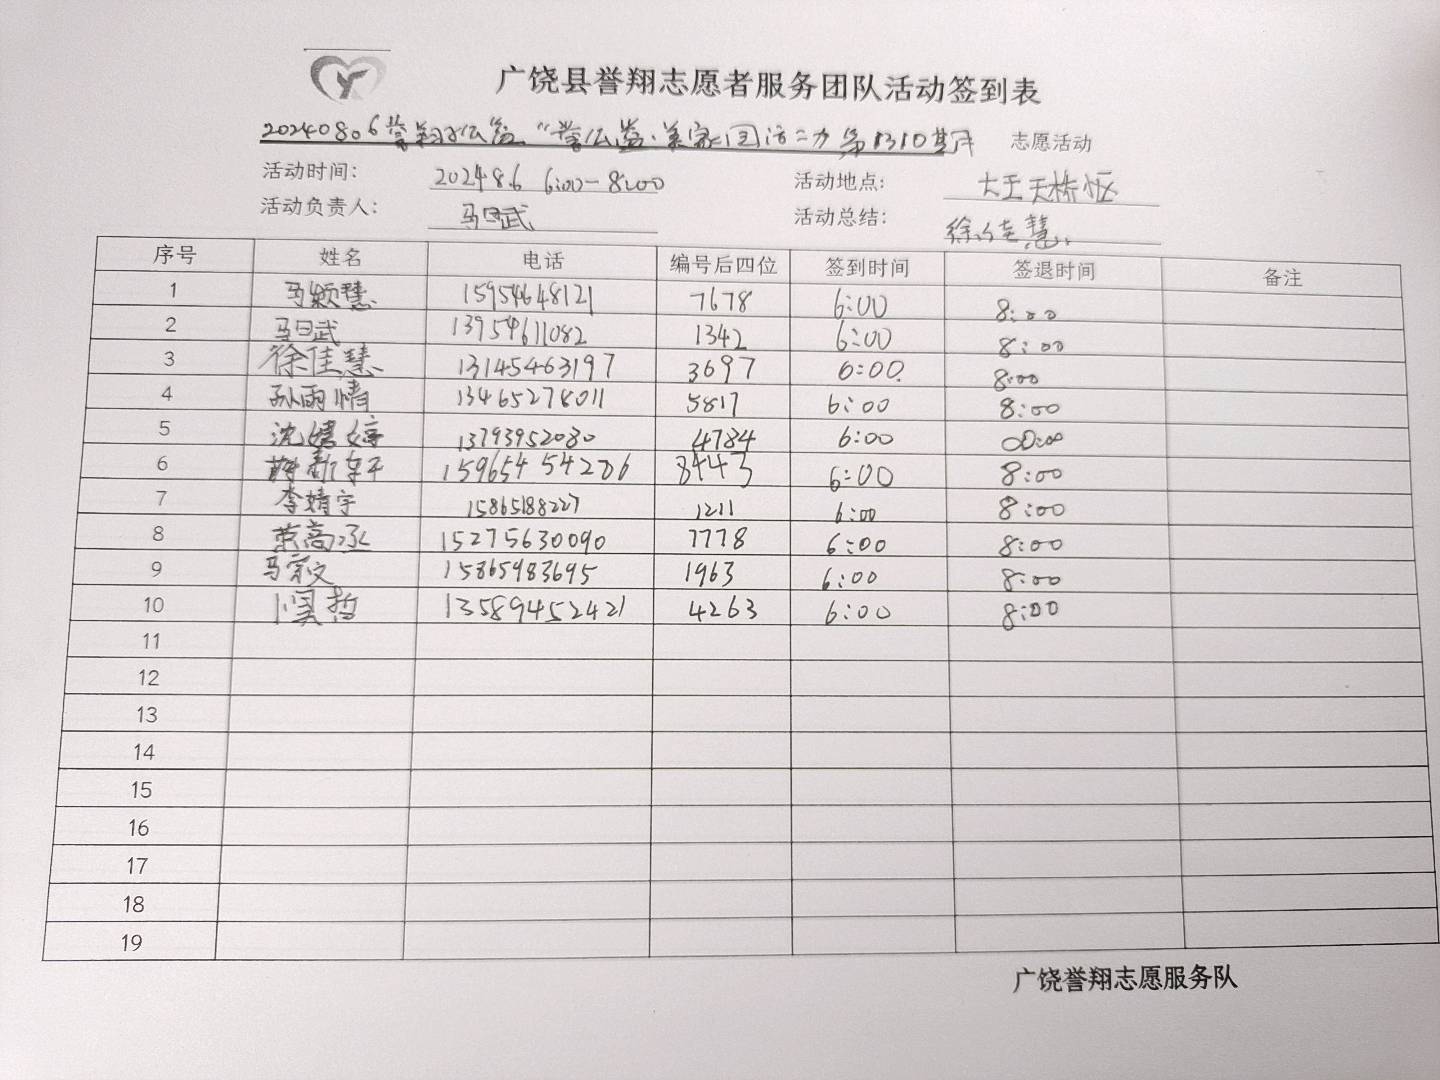 广饶县誉翔志愿者服务团队活动签到表
20240806誉翔公益"誉公益·美家园活动第1310期 志愿活动
活动时间: 2024 8.6 6:00-8:00 活动地点: 大王天桥
活动负责人: 马日武 活动总结: 徐佳慧
序号 姓名 电话 编号后四位 签到时间 签退时间 备注
1 马颖慧 15954648121 7678 6:00 8:00
2 马日武 13954611082 1342 6:00 8:00
3 徐佳慧 13145463197 3697 6:00 8:00
4 孙雨情 13465278011 5817 6:00 8:00
5 沈婧婷 13793952080 4784 6:00 00:00
6 15965454286 8443 6:00 8:00
7 李婧宇 15865188227 1211 6:00 8:00
8 荣高丞 15275630090 7778 6:00 8:00
9 马宗文 15865983695 1963 6:00 8:00
10 哲 13589452421 4263 6:00 8:00
11
12
13
14
15
16
17
18
19
广饶誉翔志愿服务队